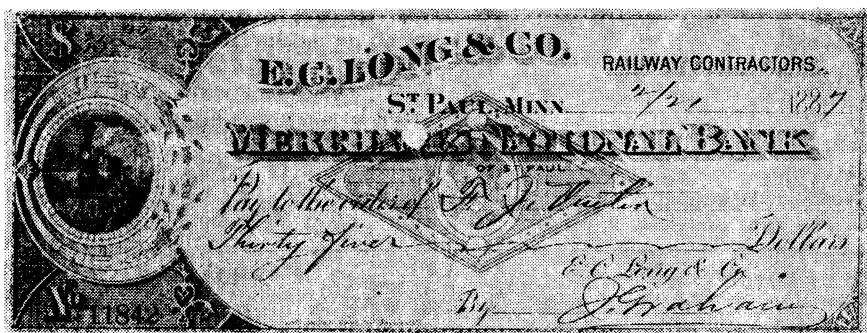 $ 35 00
E. C. LONG & CO.
RAILWAY CONTRACTORS.
ST. PAUL, MINN. 2/21 1887
MERCHANTS NATIONAL BANK
OF ST. PAUL
Pay to the order of F. J.
Thirty five Dollars
E C Long & Co
No. 11842 By J. Graham